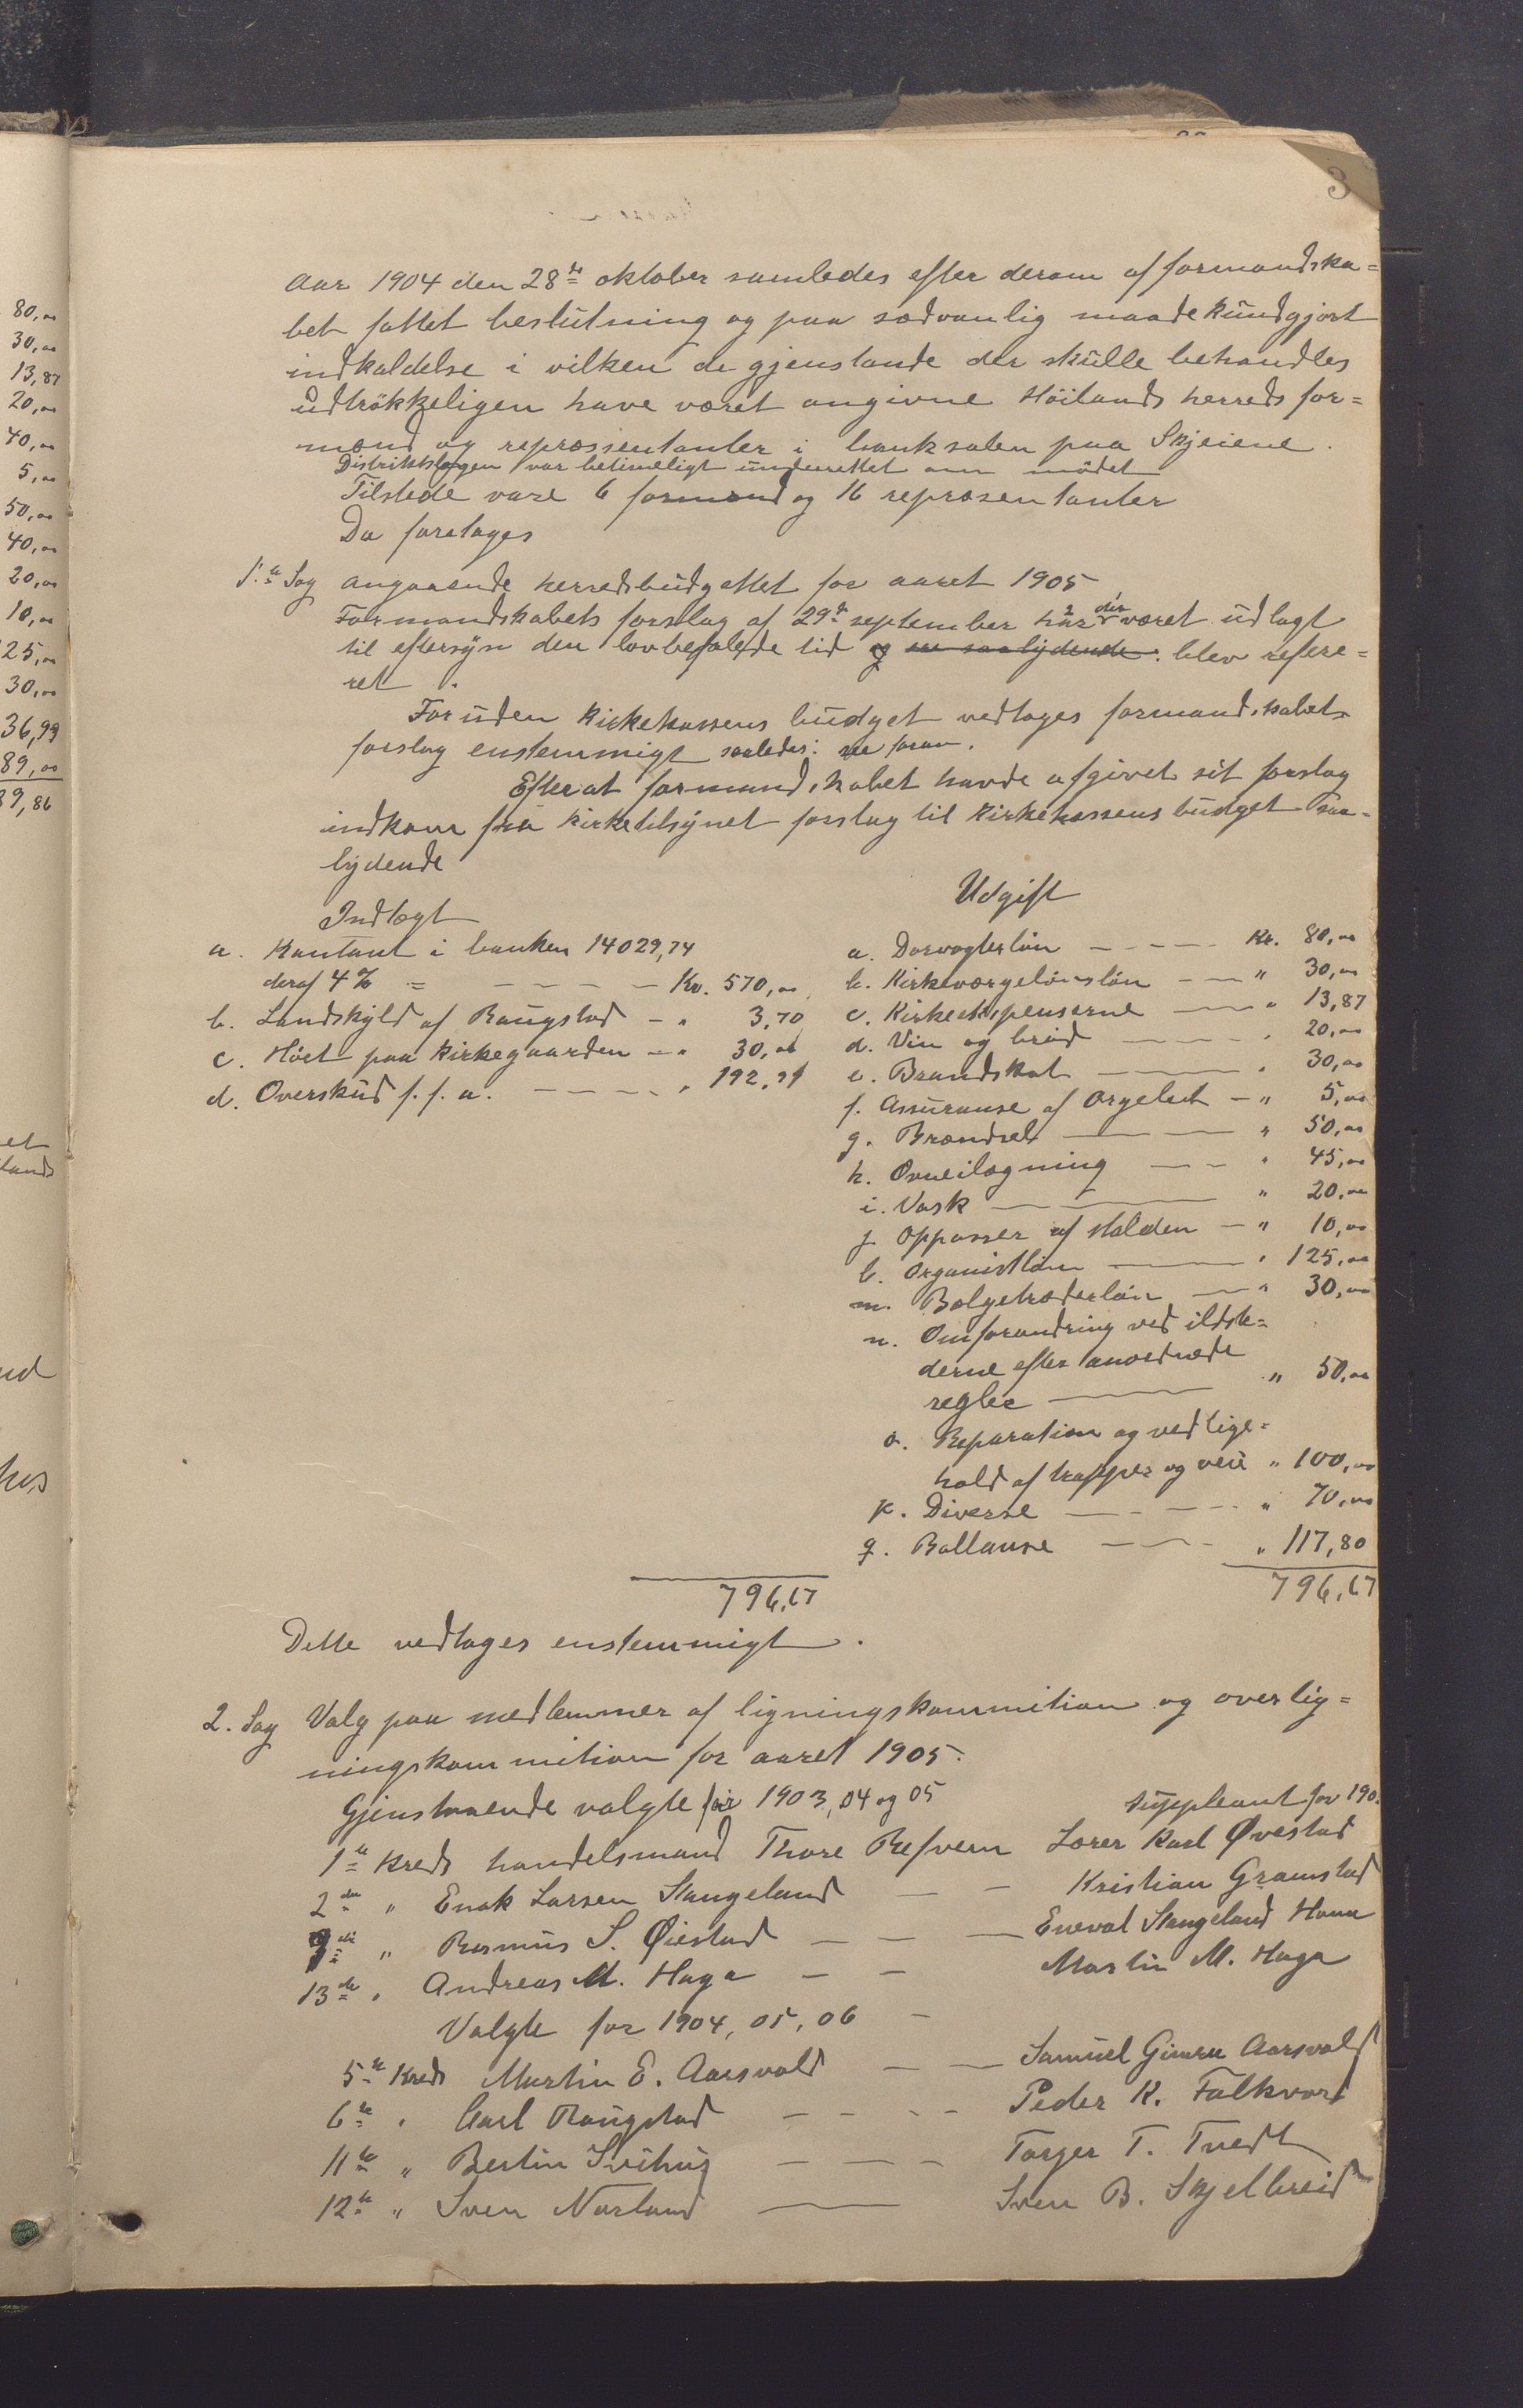 3
Aar 1904 den 28de oktober samledes efter derom af formandska=
bet fattet beslutning og paa sædvanlig maade kundgjort
indkaldelse i vilken de gjenstande der skulle behandles
udtrökkeligen have været angivne Höilands herreds for=
mænd og repræssentanter i banksalen paa Skjeiene.
Distriktslægen var betimeligt underrettet om mödet
Tilstede vare 6 formænd og 16 repræsentanter
Da foretages
1.ste Sag angaaende herredsbudgettet for aaret 1905
Formandskabets forslag af 29de september har der været udlagt
til eftersyn den lovbefalede tid og er saalydende. blev refere=
ret.
Foruden Kirkekassens budget vedtages formandskabets
forslag enstemmigt saaledes: se foran.
Efterat formandskabet havde afgivet sit forslag
indkom fra Kirketilsynet forslag til Kirkekassens budget saa=
lydende
Indtægt
a. Kontant i banken 14029,74
deraf 4% = Kr. 570,00
b. Landskyld af Raugstad - " 3,70
c. Höet paa Kirkegaarden - " 30,00
d. Overskud f. f. a. " 192,97
796,67
Udgift
a. Dorvogterlön Kr. 80,00
b. Kirkeværgelönslön " 30,00
c. Kirkeekspenserne " 13,87
d. Vin og bröd " 20,00
e. Brandskat " 30,00
f. Assuranse af Orgelet - " 5,00
g. Brændsel " 50,00
h. Ovneilægning " 45,00
i. Vask " 20,00
j. Oppasser af stalden - " 10,00
l. Organistlön " 125,00
m. Bælgetræderlön " 30,00
n. Omforandring ved ildste=
derne efter anordnede
regler " 50,00
o. Reparation og vedlige=
hold af trapper og veie " 100,00
p. Diverse " 70,00
q. Ballanse " 117,80
796,67
Dette vedtages enstemmigt.
2. Sag Valg paa medlemmer af ligningskommition og overlig=
ningskommition for aaret 1905.
Gjenstaaende valgte for 1903, 04 og 05 suppleant for 190
1ste Kreds handelsmand Thore Refvem Lærer Karl Øvestad
2den " Enok Larsen Stangeland - - Kristian Gramstad
9de " Rasmus S. Øiestad - - - Enevald Stangeland Hana
13de " Andreas M. Haga - - Martin M. Haga
Valgte for 1904, 05, 06 -
5te Kreds Martin E. Aarsvold - - Samuel Gimre Aarsvold
6te " Carl Raugstad - - - - Peder K. Falkvard
11te " Bertin Svihus - - - Torger T. Tvedt
12te " Sven Norland - Sven B. Skjelbreid
80,00
30,00
13,87
20,00
40,00
5,00
50,00
40,00
20,00
10,00
125,00
30,00
36,99
89,00
89,86